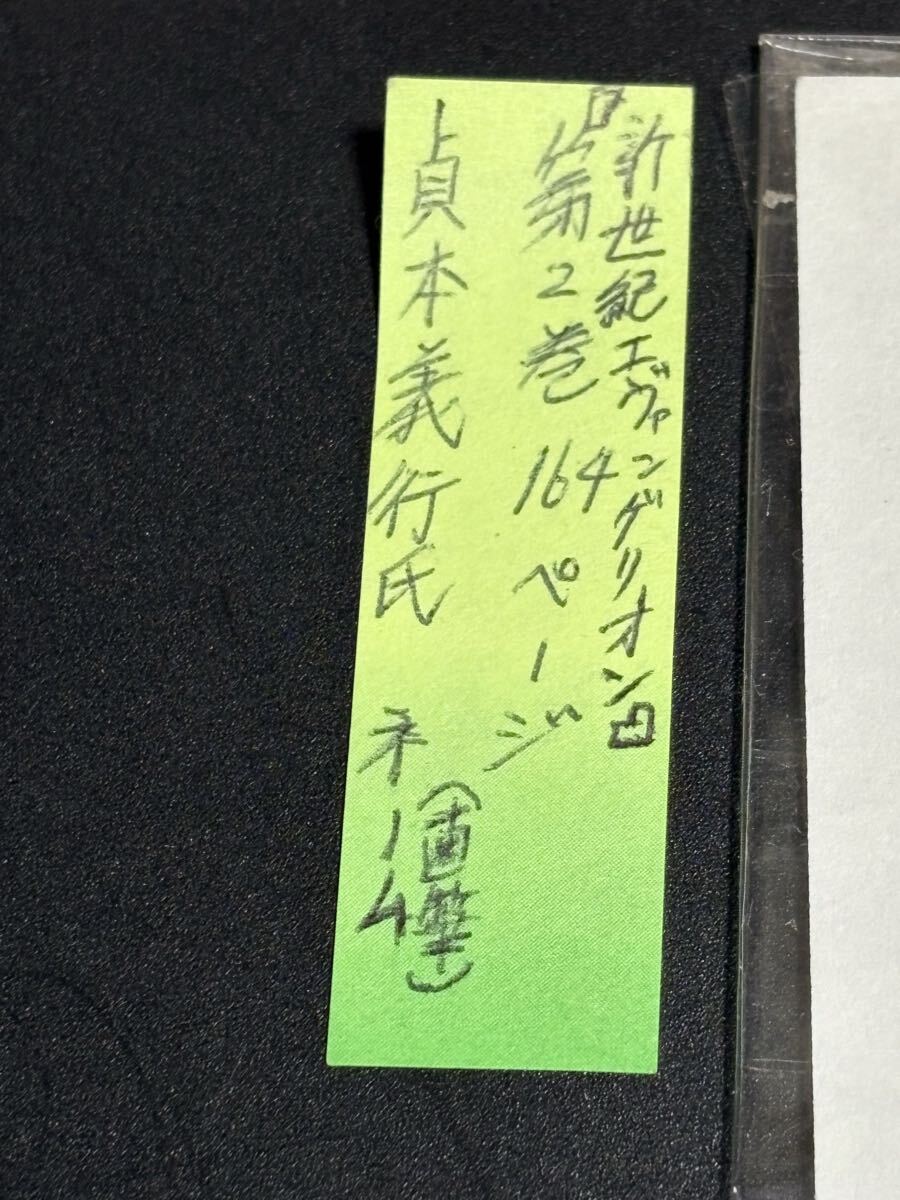 『新世紀エヴァンゲリオン』
第2巻 164ページ
貞本義行氏 ネーム
(直筆)